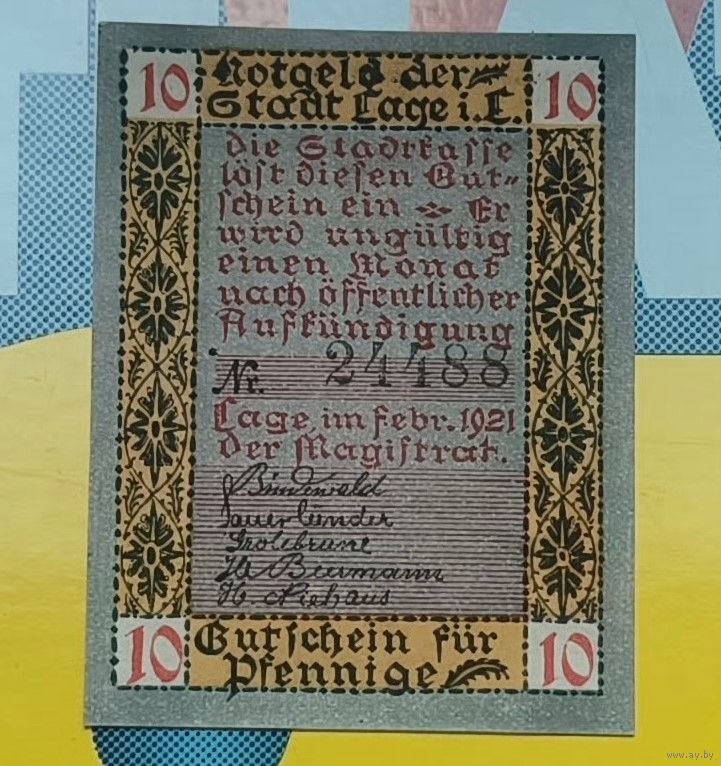 10 Notgeld der 10
Stadt Lage i.L.
Die Stadtkasse
löst diesen Gut-
schein ein Er
wird ungültig
einen Monat
nach öffentlicher
Aufkündigung
Nr. 24488
Lage, im Febr. 1921
Der Magistrat.
Sauerländer
Grotebrune
Beermann
H. Niehaus
10 Gutschein für 10
Pfennige
www.ay.by